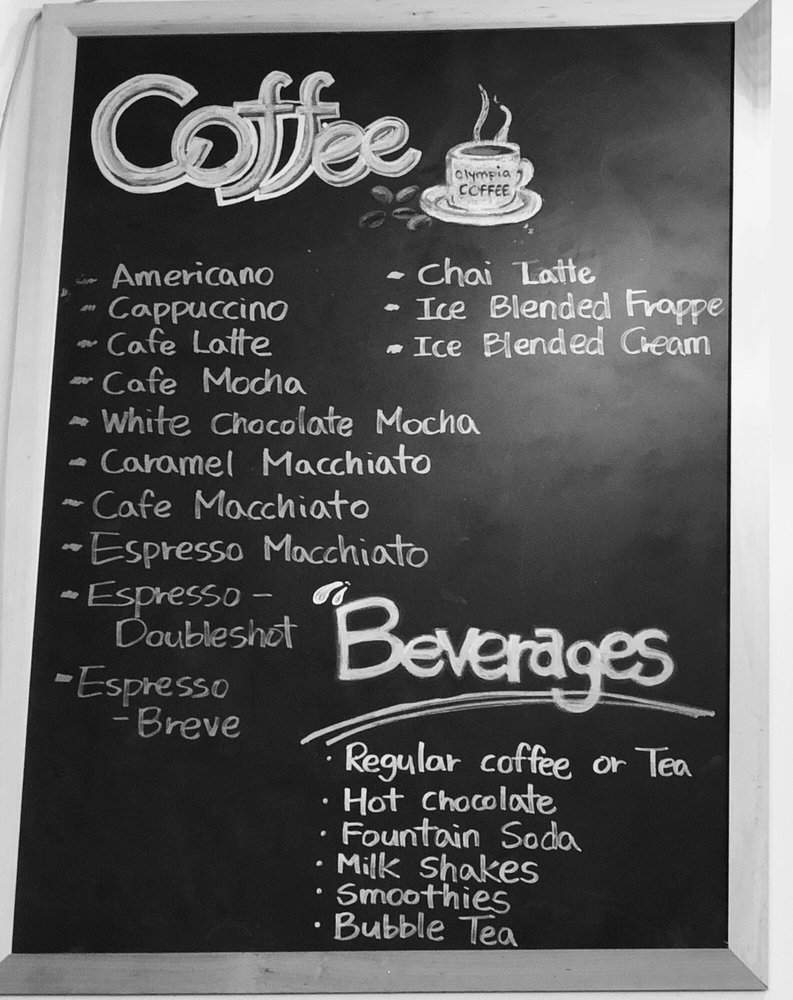 Coffee
Olympia
COFFEE
- Americano
- Cappuccino
- Cafe Latte
- Cafe Mocha
- White Chocolate Mocha
- Caramel Macchiato
- Cafe Macchiato
- Espresso Macchiato
- Espresso -
Doubleshot
- Espresso
- Breve
- Chai Latte
- Ice Blended Frappe
- Ice Blended Cream
Beverages
· Regular coffee or Tea
· Hot chocolate
· Fountain Soda
· Milk shakes
· Smoothies
· Bubble Tea